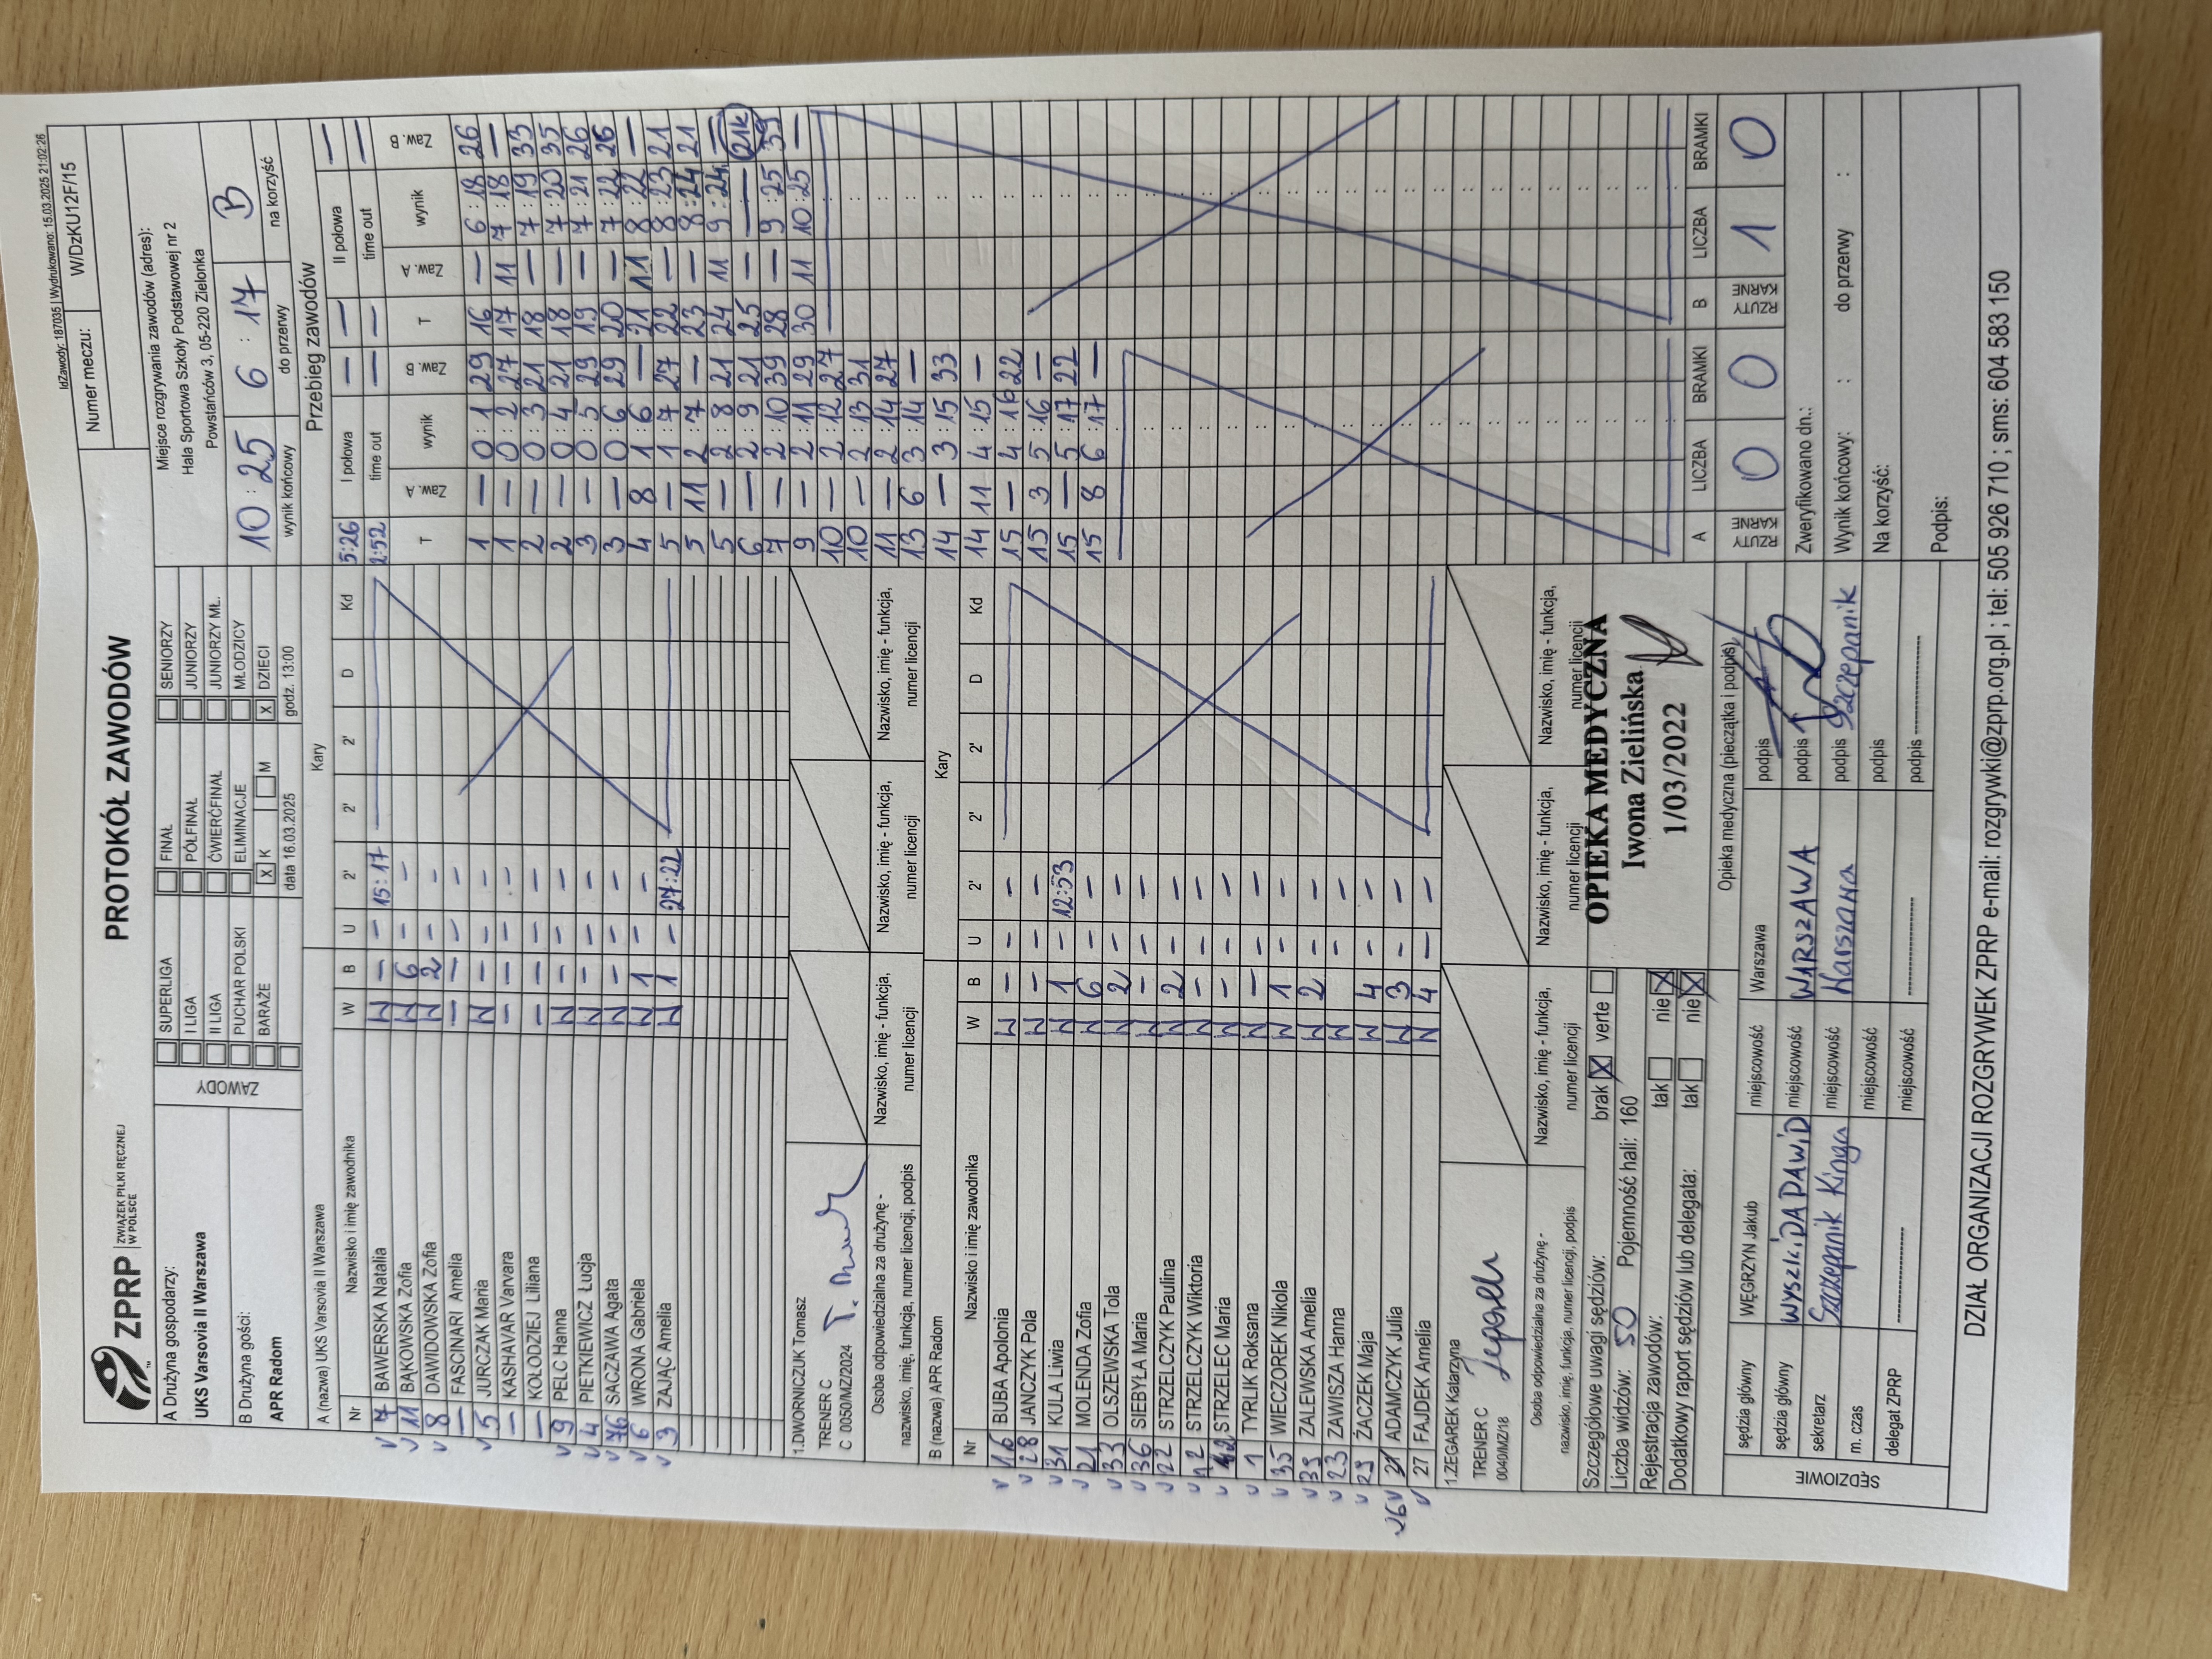 IdZawody: 187035 | Wydrukowano: 15.03.2025 21:02:26
ZPRP ZWIĄZEK PIŁKI RĘCZNEJ W POLSCE
PROTOKÓŁ ZAWODÓW
Numer meczu: W/DzKU12F/15
A Drużyna gospodarzy:
UKS Varsovia II Warszawa
B Drużyna gości:
APR Radom
ZAWODY
SUPERLIGA FINAŁ SENIORZY
I LIGA PÓŁFINAŁ JUNIORZY
II LIGA ĆWIERĆFINAŁ JUNIORZY MŁ.
PUCHAR POLSKI ELIMINACJE MŁODZICY
BARAŻE X K M X DZIECI
data 16.03.2025 godz. 13:00
Miejsce rozgrywania zawodów (adres):
Hala Sportowa Szkoły Podstawowej nr 2
Powstańców 3, 05-220 Zielonka
10 : 25 6 : 17 B
wynik końcowy do przerwy na korzyść
A (nazwa) UKS Varsovia II Warszawa Kary
Nr Nazwisko i imię zawodnika W B U 2' 2' 2' D Kd
7 BAWERSKA Natalia W - - 15:17
11 BĄKOWSKA Zofia W 6 - -
8 DAWIDOWSKA Zofia W 2 - -
- FASCINARI Amelia - - - -
5 JURCZAK Maria W - - -
- KASHAVAR Varvara - - - -
- KOŁODZIEJ Liliana - - - -
9 PELC Hanna W - - -
4 PIETKIEWICZ Łucja W - - -
76 SACZAWA Agata W - - -
6 WRONA Gabriela W 1 - -
3 ZAJĄC Amelia W 1 - 27:22
1.DWORNICZUK Tomasz
TRENER C
C 0050/MZ/2024
Osoba odpowiedzialna za drużynę -
nazwisko, imię, funkcja, numer licencji, podpis
Nazwisko, imię - funkcja, numer licencji
Nazwisko, imię - funkcja, numer licencji
Nazwisko, imię - funkcja, numer licencji
B (nazwa) APR Radom Kary
Nr Nazwisko i imię zawodnika W B U 2' 2' 2' D Kd
16 BUBA Apolonia W - - -
28 JANCZYK Pola W - - -
31 KULA Liwia W 1 - 12:53
21 MOLENDA Zofia W 6 - -
33 OLSZEWSKA Tola W 2 - -
36 SIEBYŁA Maria W - - -
22 STRZELCZYK Paulina W 2 - -
12 STRZELCZYK Wiktoria W - - -
STRZELEC Maria W - - -
1 TYRLIK Roksana W - - -
35 WIECZOREK Nikola W 1 - -
39 ZALEWSKA Amelia W 2 - -
23 ZAWISZA Hanna W - -
29 ŻACZEK Maja W 4 - -
26 ADAMCZYK Julia W 3 - -
27 FAJDEK Amelia W 4 - -
1.ZEGAREK Katarzyna
TRENER C
0040/MZ/18
Osoba odpowiedzialna za drużynę -
nazwisko, imię, funkcja, numer licencji, podpis
Nazwisko, imię - funkcja, numer licencji
Nazwisko, imię - funkcja, numer licencji
Nazwisko, imię - funkcja, numer licencji
Przebieg zawodów
5:26 I połowa — — II połowa —
2:52 time out — — time out —
T Zaw. A wynik Zaw. B T Zaw. A wynik Zaw. B
1 — 0 : 1 29 16 — 6 : 18 26
1 — 0 : 2 27 17 11 7 : 18 —
2 — 0 : 3 21 18 — 7 : 19 33
2 — 0 : 4 21 18 — 7 : 20 35
3 — 0 : 5 29 19 — 7 : 21 26
3 — 0 : 6 29 20 — 7 : 22 26
4 8 1 : 6 — 21 11 8 : 22 —
5 — 1 : 7 27 22 — 8 : 23 21
5 11 2 : 7 — 23 — 8 : 24 21
5 — 2 : 8 21 24 11 9 : 24 —
6 — 2 : 9 21 25 — — 21k
7 — 2 : 10 39 28 — 9 : 25 39
9 — 2 : 11 29 30 11 10 : 25 —
10 — 2 : 12 27
10 — 2 : 13 31
11 — 2 : 14 27
13 6 3 : 14 —
14 — 3 : 15 33
14 11 4 : 15 —
15 — 4 : 16 22
15 3 5 : 16 —
15 — 5 : 17 22
15 8 6 : 17 —
A LICZBA BRAMKI B LICZBA BRAMKI
RZUTY KARNE 0 0 RZUTY KARNE 1 0
Szczegółowe uwagi sędziów: brak X verte
Liczba widzów: 50 Pojemność hali: 160
Rejestracja zawodów: tak nie X
Dodatkowy raport sędziów lub delegata: tak nie X
OPIEKA MEDYCZNA
Iwona Zielińska
1/03/2022
Opieka medyczna (pieczątka i podpis)
Zweryfikowano dn.:
Wynik końcowy: : do przerwy :
Na korzyść:
Podpis:
SĘDZIOWIE
sędzia główny WĘGRZYN Jakub miejscowość Warszawa podpis
sędzia główny WYSZKIDA DAWID miejscowość WARSZAWA podpis
sekretarz Szczepanik Kinga miejscowość Warszawa podpis Szczepanik
m. czas miejscowość podpis
delegat ZPRP ---------------- miejscowość ---------------- podpis ----------------
DZIAŁ ORGANIZACJI ROZGRYWEK ZPRP e-mail: rozgrywki@zprp.org.pl ; tel: 505 926 710 ; sms: 604 583 150